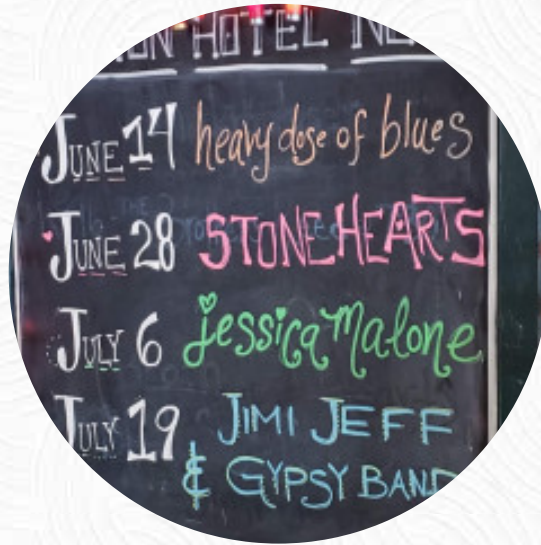 HOTEL
JUNE 14 heavy dose of blues
JUNE 28 STONEHEARTS
JULY 6 jessica malone
JULY 19 JIMI JEFF
& GYPSY BAND